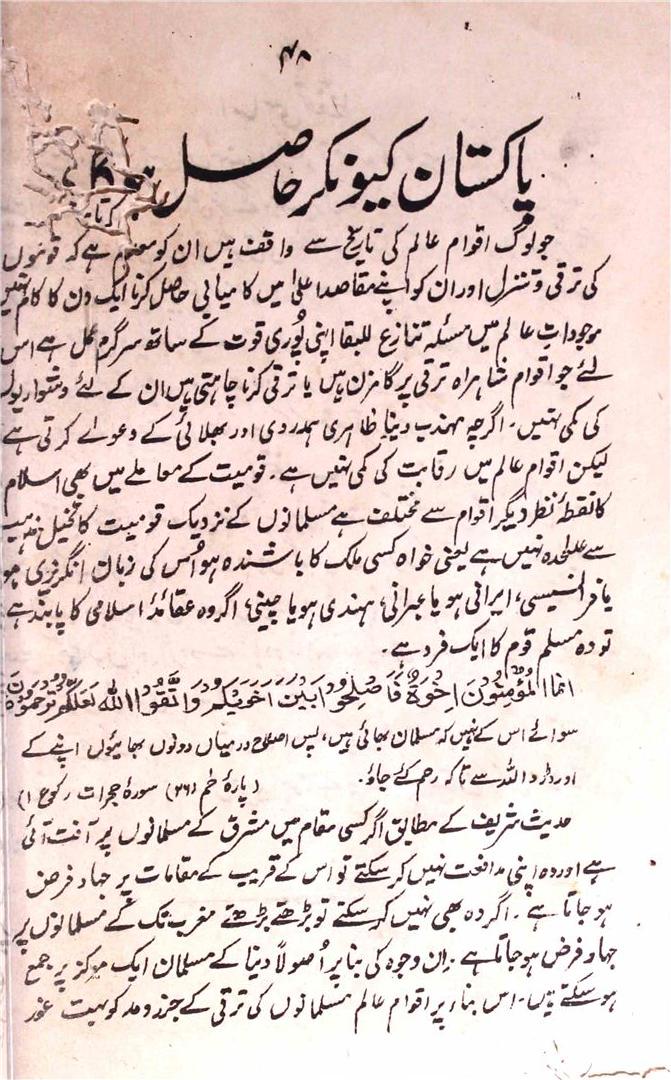 ۴۸
پاکستان کیونکر حاصل ہوگا
جو لوگ اقوام عالم کی تاریخ سے واقف ہیں ان کو معلوم ہے کہ قوموں
کی ترقی و تنزل اور ان کو اپنے مقاصد اعلیٰ میں کامیابی حاصل کرنا ایک دن کا کام نہیں
موجودات عالم میں مسئلہ تنازع للبقا اپنی پُوری قوت کے ساتھ سرگرم عمل ہے اس
لئے جو اقوام شاہراہ ترقی پر گامزن ہیں یا ترقی کرنا چاہتی ہیں ان کے لئے دشواریوں
کی کمی نہیں۔ اگرچہ مہذب دنیا ظاہری ہمدردی اور بھلائی کے دعوے کرتی ہے
لیکن اقوام عالم میں رقابت کی کمی نہیں ہے۔ قومیت کے معاملے میں بھی اسلام
کا نقطۂ نظر دیگر اقوام سے مختلف ہے مسلمانوں کے نزدیک قومیت کا تخیل مذہب
سے علیحدہ نہیں ہے یعنی خواہ کسی ملک کا باشندہ ہو اُس کی زبان انگریزی ہو
یا فرانسیسی، ایرانی ہو یا عبرانی، ہندی ہو یا چینی، اگر وہ عقائد اسلامی کا پابند ہے
تو وہ مسلم قوم کا ایک فرد ہے۔
انما المُؤمِنُونَ اِخوَۃٌ فَاَصلِحُوا بَینَ اَخَوَیکُم وَاتَّقُوا اللہ لَعَلَّکُم تُرحَمُونَ
سوائے اس کے نہیں کہ مسلمان بھائی ہیں، پس اصلاح درمیاں دونوں بھائیوں اپنے کے
اور ڈرو اللہ سے تاکہ رحم کئے جاؤ۔ (پارۂ حٰم (۲۶) سورۂ حجرات رکوع ۱)
حدیث شریف کے مطابق اگر کسی مقام میں مشرق کے مسلمانوں پر آفت آئی
ہے اور وہ اپنی مدافعت نہیں کر سکتے تو اس کے قریب کے مقامات پر جہاد فرض
ہو جاتا ہے۔ اگر وہ بھی نہیں کر سکتے تو بڑھتے بڑھتے مغرب تک کے مسلمانوں پر
جہاد فرض ہو جاتا ہے۔ ان وجوہ کی بنا پر اُصولاً دنیا کے مسلمان ایک مرکز پر جمع
ہو سکتے ہیں۔ اس بناء پر اقوام عالم مسلمانوں کی ترقی کے جزر و مد کو بہت غور